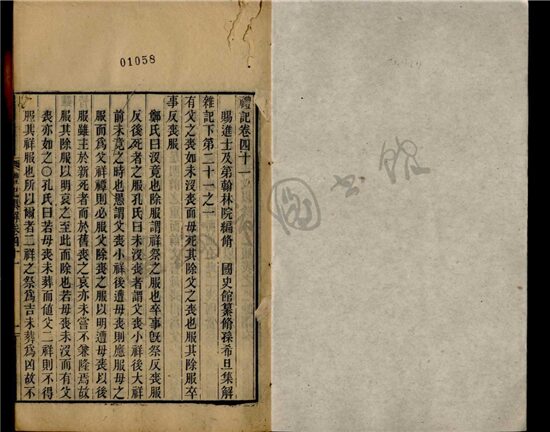 01058
禮記卷四十一
賜進士及第翰林院編脩 國史館纂脩孫希旦集解
雜記下第二十一之一
有父之喪如未沒喪而母死其除父之喪也服其除服卒
事反喪服
鄭氏曰沒竟也除服謂祥祭之服也卒事旣祭反喪服
反後死者之服孔氏曰未沒喪者謂父喪小祥後大祥
前未竟之時也愚謂父喪小祥後遭母喪則應服母之
服而爲父祥禫則必服父除喪之服以明遭母喪以後
服雖主於新死者而於舊喪之哀亦未嘗不兼隆焉故
服其除服以明哀之至此而除也若母喪未沒而有父
喪亦如之○孔氏曰若母喪未葬而値父二祥則不得
服其祥服也所以爾者二祥之祭爲吉未葬爲凶故不